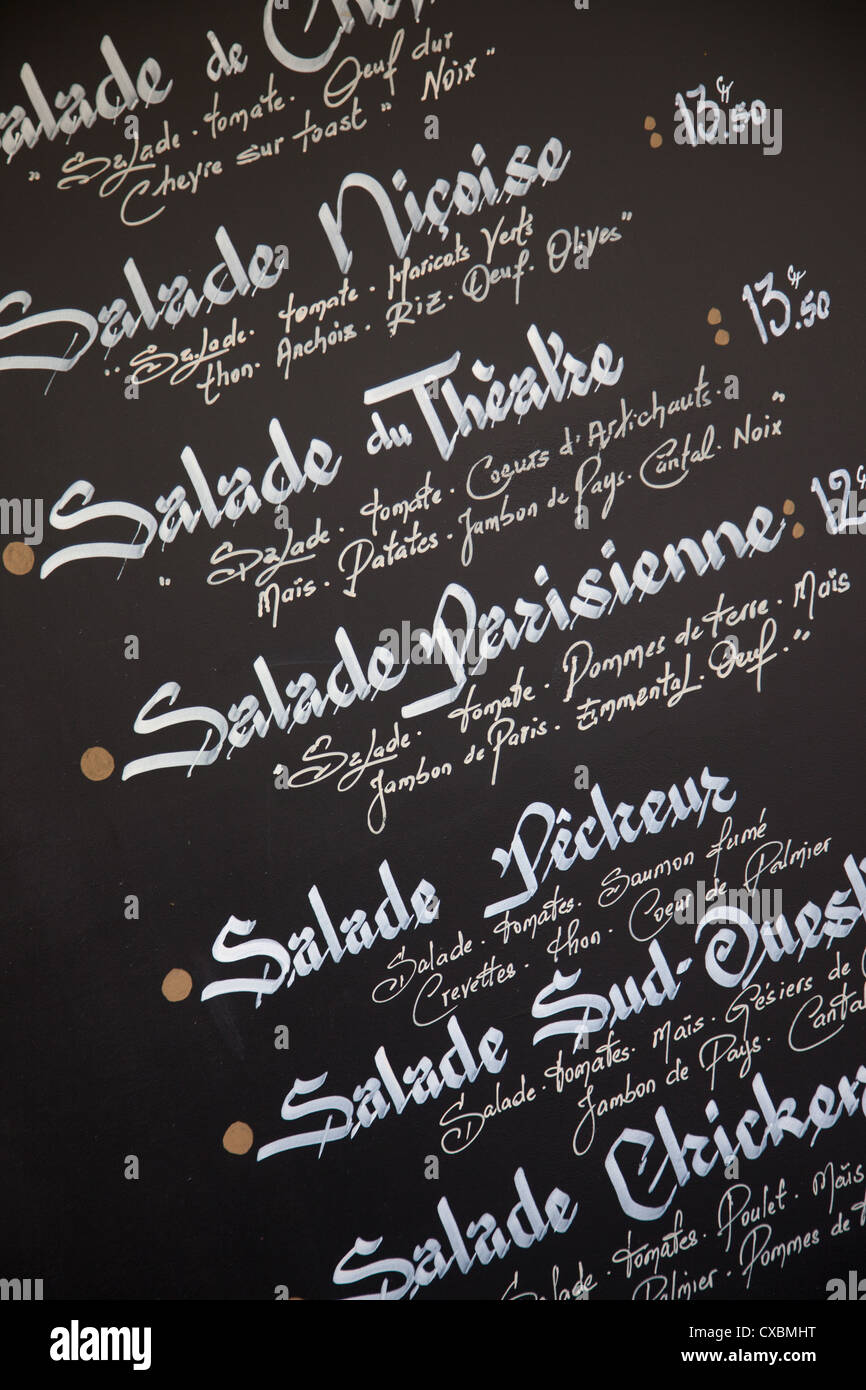 Salade de
" Salade . tomate . Oeuf dur
Chevre sur toast " Noix "
13.50
Salade Niçoise
" Salade . tomate . Haricots Verts
thon . Anchois . Riz . Oeuf . Olives "
13.50
Salade du Théatre
" Salade . tomate . Coeurs d'Artichauts .
Maïs . Patates . Jambon de Pays . Cantal . Noix "
12
Salade Parisienne
" Salade . tomate . Pommes de terre . Maïs
Jambon de Paris . Emmental . Oeuf . "
Salade Pêcheur
Salade . tomates . Saumon fumé
Crevettes . thon . Coeur de Palmier
Salade Sud-Ouest
Salade . tomates . Maïs . Gésiers de
Jambon de Pays . Cantal
Salade Chicken
Salade . tomates . Poulet . Maïs
Palmier . Pommes de
alamy
Image ID: CXBMHT
www.alamy.com